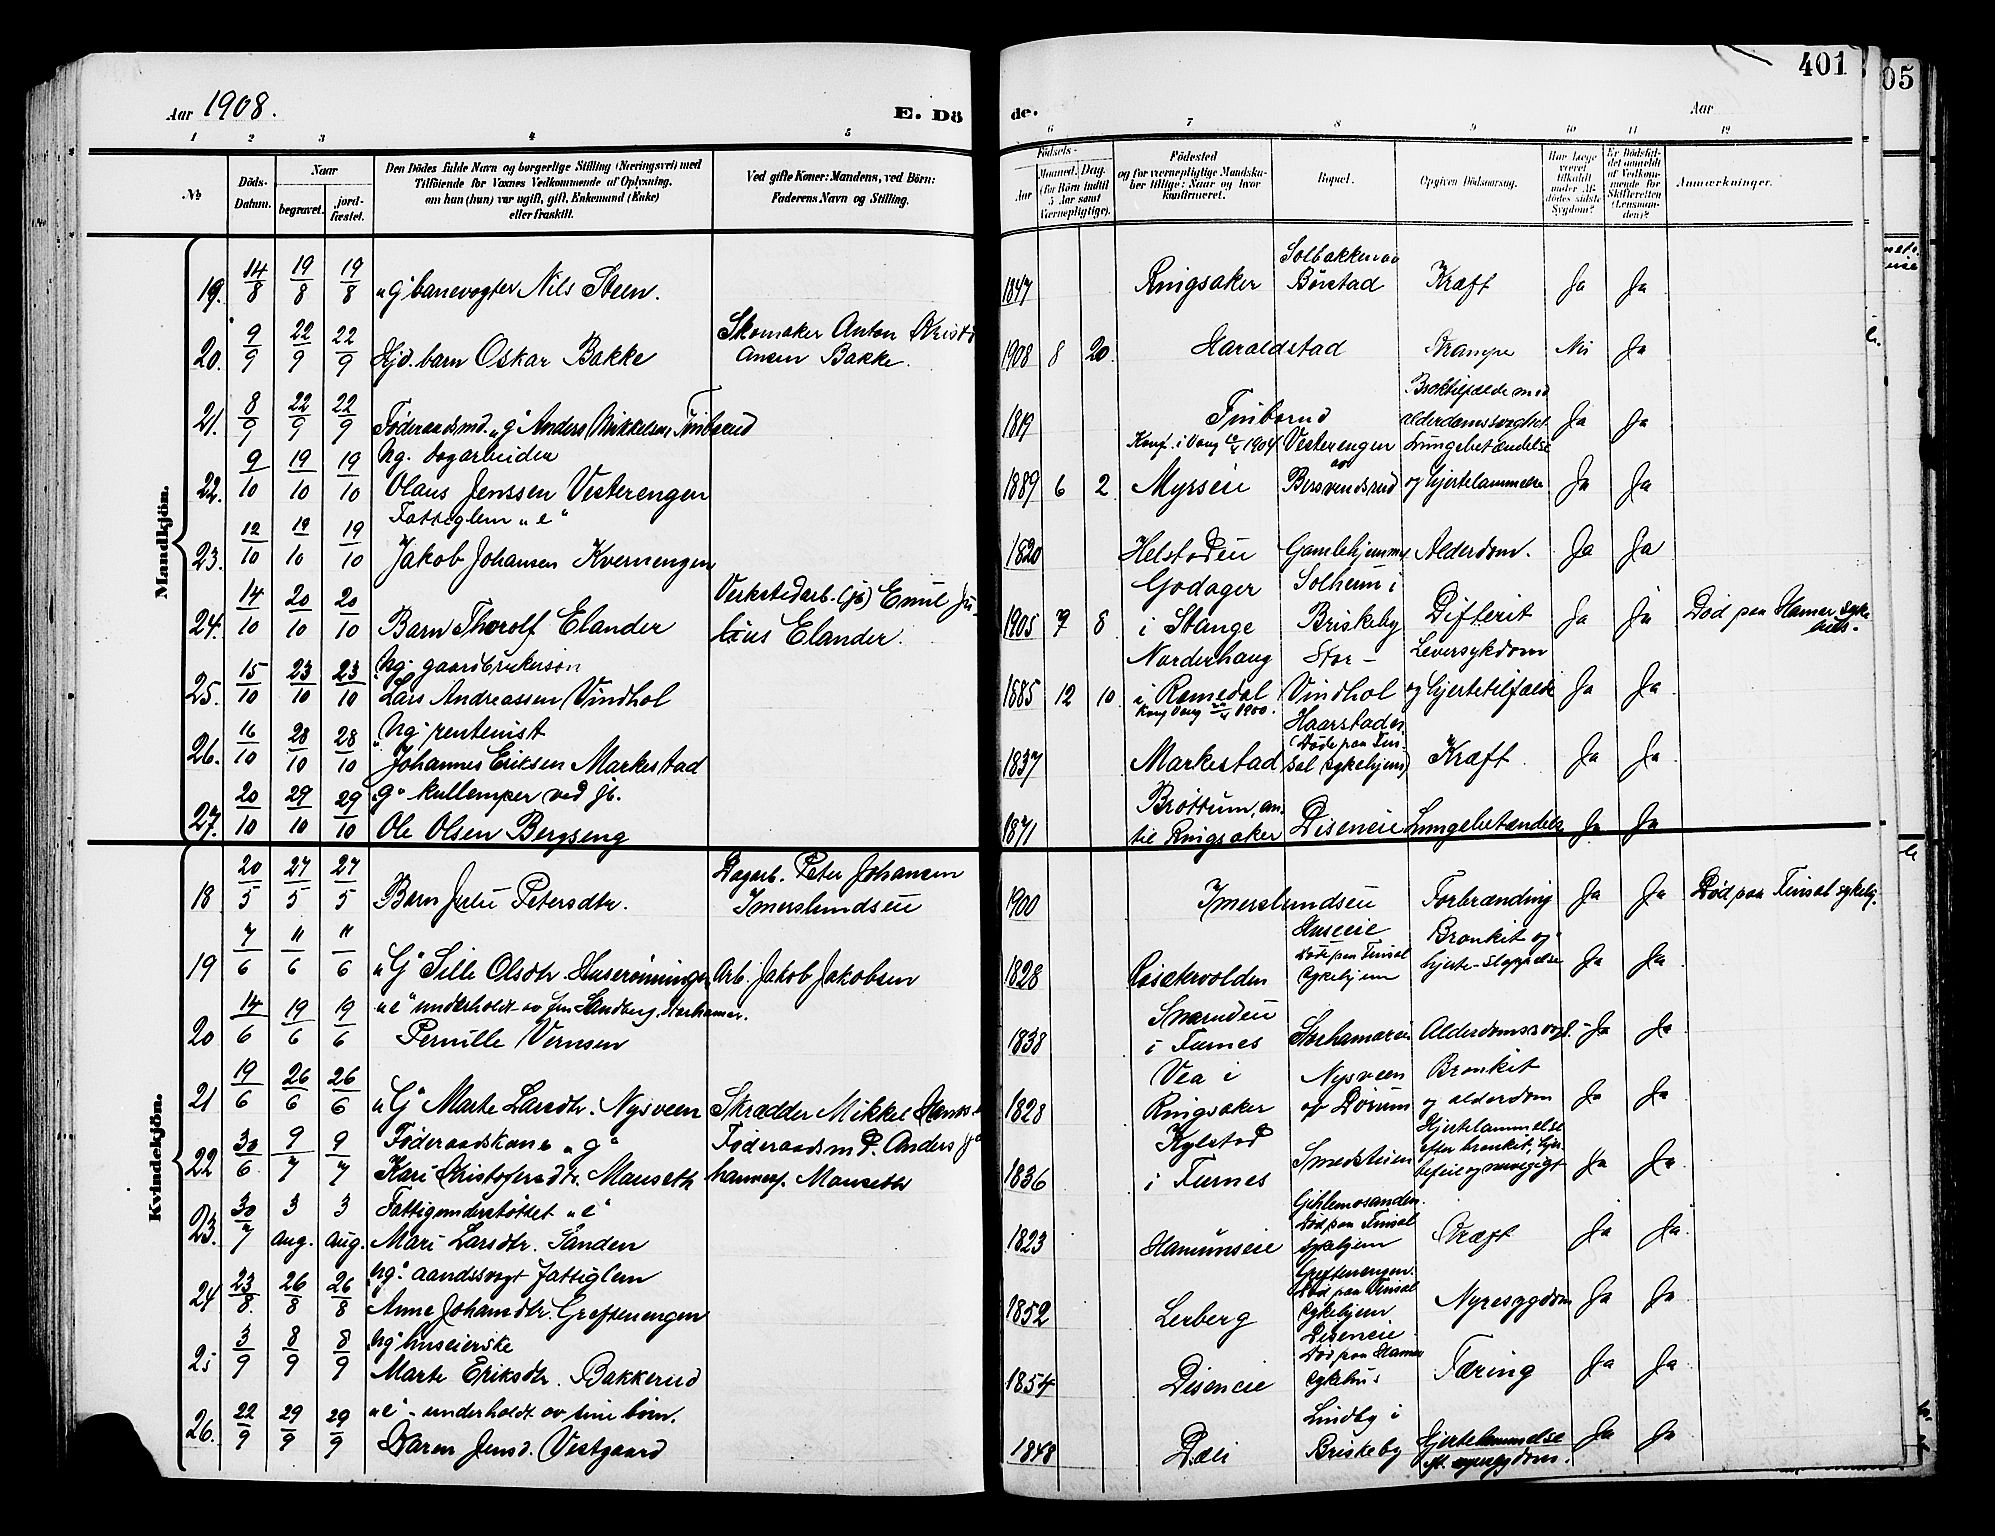 401
05
Aar 1908.
E. Dö
de.
Aar
1 2 3 4 5 6 7 8 9 10 11 12
No
Döds-Datum.
Naar
begravet.
jord-fæstet.
Den Dödes fulde Navn og borgerlige Stilling (Næringsvei) med
Tilföiende for Voxnes Vedkommende af Oplysning,
om han (hun) var ugift, gift, Enkemand (Enke)
eller fraskilt.
Ved gifte Koner: Mandens, ved Börn:
Faderens Navn og Stilling.
Födsels-
Aar
Maaned. Dag.
(for Börn indtil
5 Aar samt
Værnepligtige).
Födested
og for værnepligtige Mandsku-
ber tillige: Naar og hvor
konfirmeret.
Bopæl.
Opgiven Dödsaarsag.
Har læge
været
tilkaldt
under Af-
dödes sidste
Sygdom?
Er Dödsfal-
det anmeldt
af Vedkom-
mende for
Skifteretten
(Lensman-
den)?
Anmærkninger.
Mandkjön.
19. 14/8 19/8 19/8 "g" banevogter Nils Steen. 1847 Ringsaker Solbakken av
Børstad Kræft Ja Ja
20. 9/9 22/9 22/9 Hjd. barn Oskar Bakke Skomaker Anton Kristi
ansen Bakke. 1908 8 20 Haraldstad Krampe Nei Ja
21. 8/9 22/9 22/9 Føderaadsmd. "g" Anders Mikkelsen Finborud 1819 Finborud Braktilfælde med
alderdomssvaghet Ja Ja
22. 9/10 19/10 19/10 "ug." dagarbeider
Olaus Jenssen Vesterengen 1889 6 2 Konf. i Vang 1904
Myrseie Vesterengen
av
Bersvendsrud Lungebetændelse
og hjertelammelse Ja Ja
23. 12/10 19/10 19/10 Fattiglem "e"
Jakob Johansen Kvernengen 1820 Helstadeie Gamlehjemmet Alderdom. Ja Ja
24. 14/10 20/10 20/10 Barn Thorolf Elander Verkstedarb. (jb) Emil Ju-
lius Elander. 1905 7 8 Godager
i Stange Solheim i
Briskeby Difterit Ja Ja Død paa Hamar syke
hus.
25. 15/10 23/10 23/10 "ug" gaardbrukersøn
Lars Andreassen Vindhol 1885 12 10 Norderhaug
i Romedal
Konf Vang 1900. Stor-
Vindhol Leversykdom
og hjertetilfælde Ja Ja
26. 16/10 28/10 28/10 "ug" rentenist
Johannes Eriksen Markestad 1837 Markestad Haarstadei
(Døde paa Fin-
sal sykehjem) Kræft Ja Ja
27. 20/10 29/10 29/10 "g" kullemper ved jb.
Ole Olsen Bergseng 1871 Brøttum, an.
til Ringsaker Diseneie Lungebetændelse Ja Ja
Kvindekjön.
18 20/5 27/5 27/5 Barn Julie Petersdtr. Dagarb. Peter Johansen
Imerslundseie 1900 Imerslundseie Forbrænding Ja Ja Død paa Finsal sykehj.
19 7/6 11/6 11/6 "G" Sille Olsdtr. Huserønningen Arb. Jakob Jakobsen 1828 Huseeie
Døde paa Finsal
sykehjem Bronkit og
hjerte-slappelse Ja Ja
20 14/6 19/6 19/6 "e" underholdt av Jens Sandberg, Storhamar.
Pernille Vernsen 1838 Snarudeie
i Furnes Storhamareie Alderdomssvagh. Ja Ja
21 19/6 26/6 26/6 "G" Marte Larsdtr. Nysveen Skrædder Mikkel Hanssen 1828 Vea i
Ringsaker Nysveen
av Dørum Bronkit
og alderdom Ja Ja
22 30/6 9/7 9/7 Føderaadskone "g"
Kari Kristofersdtr. Manseth Føderaadsmd. Anders Jo
hannes. Manseth 1836 Kylstad
i Furnes Smedstuen Hjertelammelse
efter bronkit, hjer-
tefeil og nyregigt Ja Ja
23. 30/7 3 aug. 3 aug. Fattigunderstøttet "e"
Mari Larsdtr. Sanden 1823 Hamunseie Gihlemosanden.
Død paa Finsal
sykehjem Kræft Ja Ja
24 23/8 26/8 26/8 "ug" aandssvagt fattiglem
Anne Johansdtr. Greftenengen 1852 Lerberg Greftenengen.
Død paa Finsal
sykehjem Nyresygdom Ja Ja
25 3/9 8/9 8/9 "ug" huseierske
Marte Eriksdtr. Bakkerud 1854 Diseneie Diseneie
Død paa Hamar
sykehus Tæring Ja Ja
26. 22/9 29/9 29/9 "e" - underholdt av sine børn.
Karen Jensd. Vestgaard 1848 Dæli Lindby i
Briskeby Hjertelammelse
Ja Ja